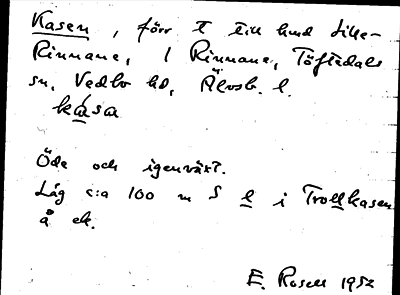 Kasen, förr t till hmd Lilla-
Rinnane, / Rinnane, Töftedals
sn, Vedbo hd, Älvsb. l.
kása
Öde och igenväxt.
Låg c:a 100 m S l i Trollkasen
å ek.
E. Rosell 1952